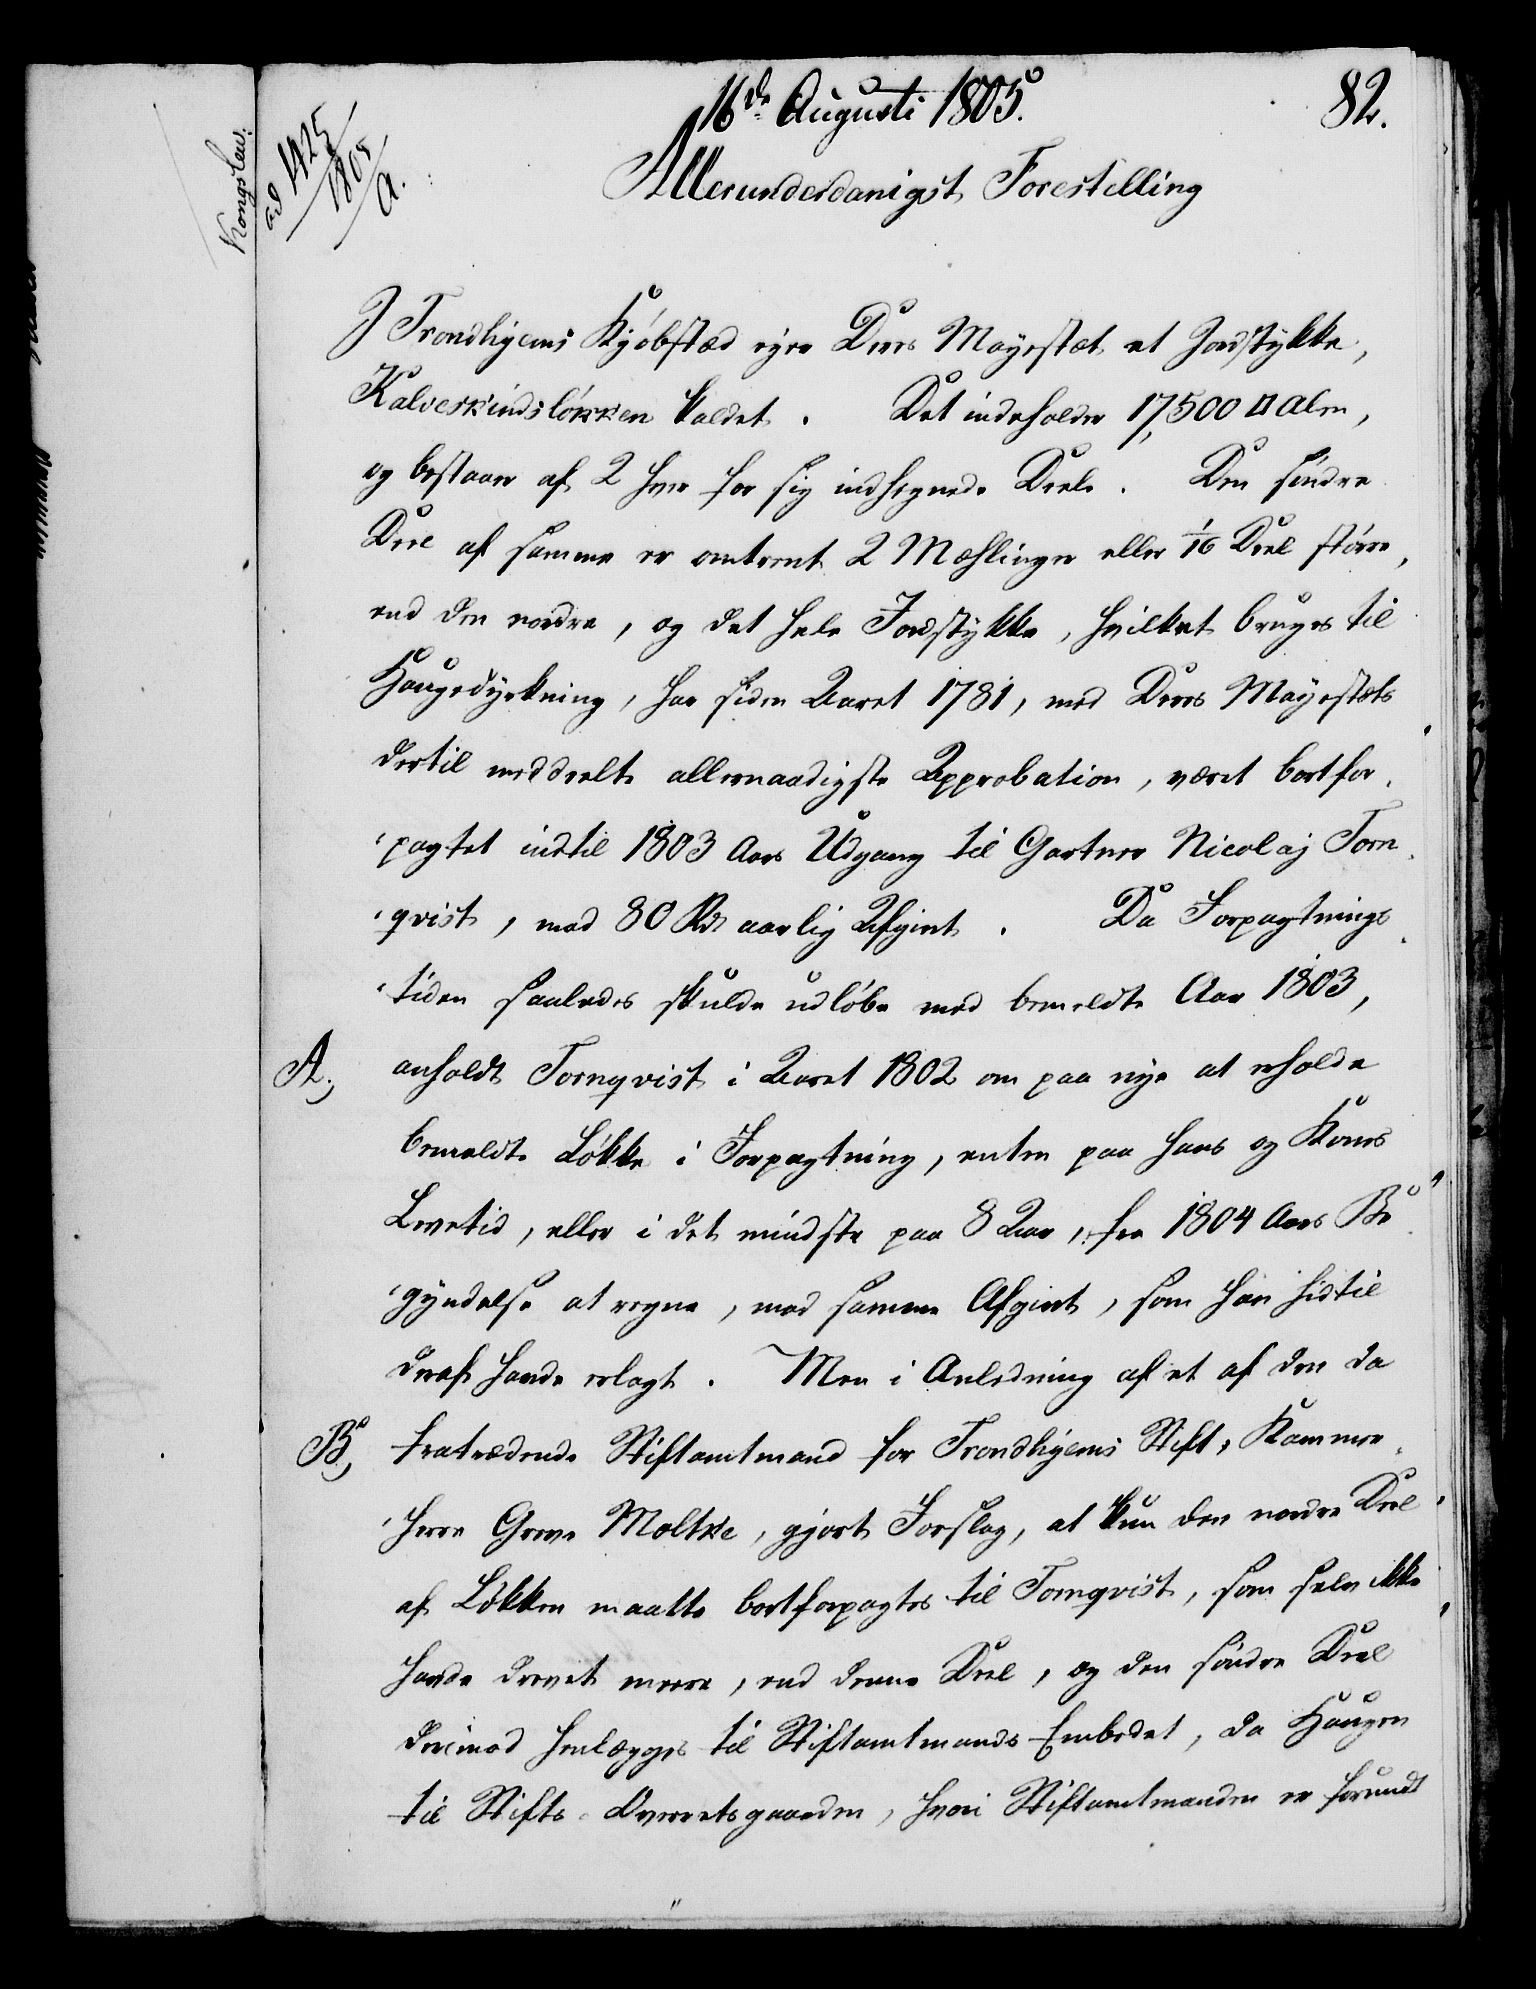 16de Augusti 1805.
82.
Kongslew:
ad 1425/1805/a.
Allerunderdanigst Forestilling
I Trondhiems Kjøbstæd ejer Deres Mayestæt et Jordstykke,
Kalveskindsløkken kaldet. Det indeholder 17,500 □ Alen,
og bestaaer af 2 hver for sig indhegnede Deele. Den søndre
Deel af samme er omtrent 2 Mæhlinger eller 1/16 Deel større,
end den nordre, og det hele Jordstykke, hvilket bruges til
Haugedyrkning, har siden Aaret 1781, med Deres Mayestæts
dertil meddeelte allernaadigste Approbation, været bortfor-
pagtet indtil 1803 Aars Udgang til Gartner Nicolaj Torn-
qvist, mod 80 Rdr aarlig Afgivt. Da Forpagtnings-
tiden saaledes skulde udløbe med bemeldte Aar 1803,
A., anholdt Tornqvist i Aaret 1802 om paa nye at erholde
bemeldte Løkke i Forpagtning, enten paa hans og Kones
Levetid, eller i det mindste paa 8 Aar, fra 1804 Aars Be-
gyndelse at regne, mod samme Afgivt, som han hidtil
deraf havde erlagt. Men i Anledning af et af den da
B, fratrædende Stiftamtmand for Trondhiems Stift, Kammer-
herre Greve Moltke, gjort Forslag, at kun den nordre Deel
af Løkken maatte bortforpagtes til Tornqvist, som selv ikke
havde drevet meere, end denne Deel, og den søndre Deel
derimod henlægges til Stiftamtmands-Embedet, da Haugen
til Stifts-Overretsgaarden, hvori Stiftamtmanden er forundt